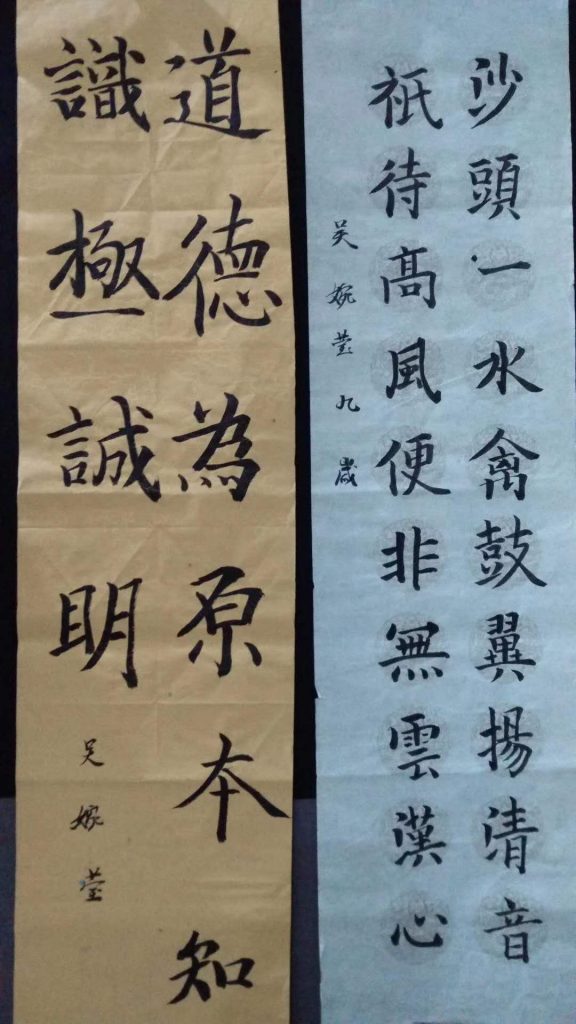 沙頭一水禽鼓翼揚清音
祇待髙風便非無雲漢心
吴婉莹九歲
道德為原本知
識極誠明
吴嫁莹